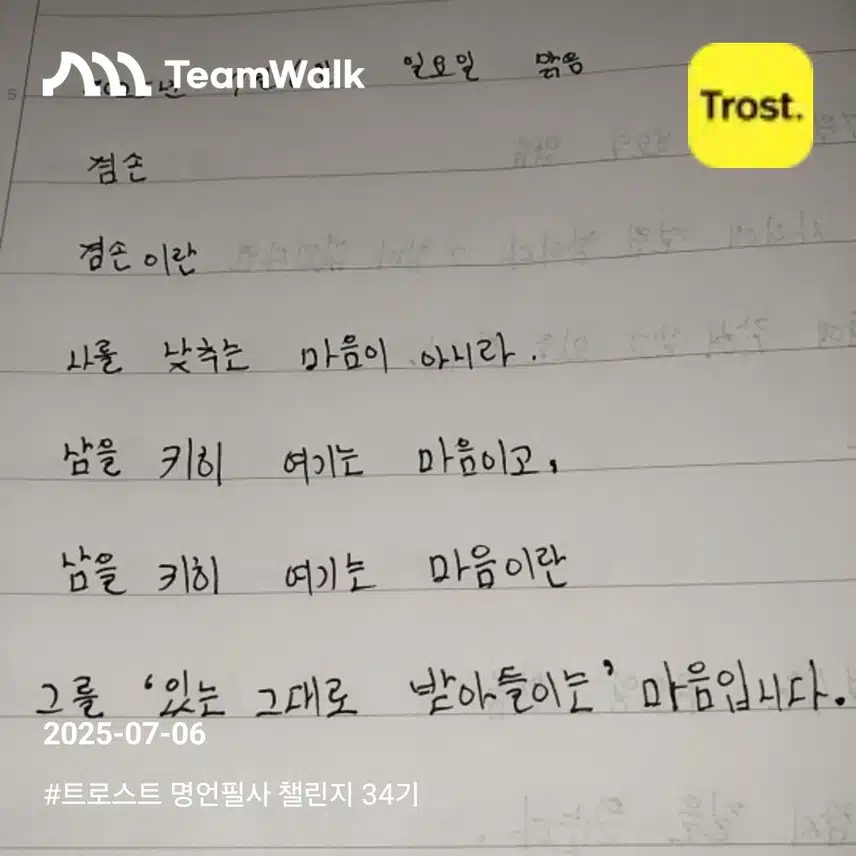 TeamWalk
일요일 맑음
Trost.
겸손
겸손이란
나를 낮추는 마음이 아니라.
남을 귀히 여기는 마음이고,
남을 귀히 여기는 마음이란
그를 '있는 그대로 받아들이는' 마음입니다.
2025-07-06
#트로스트 명언필사 챌린지 34기